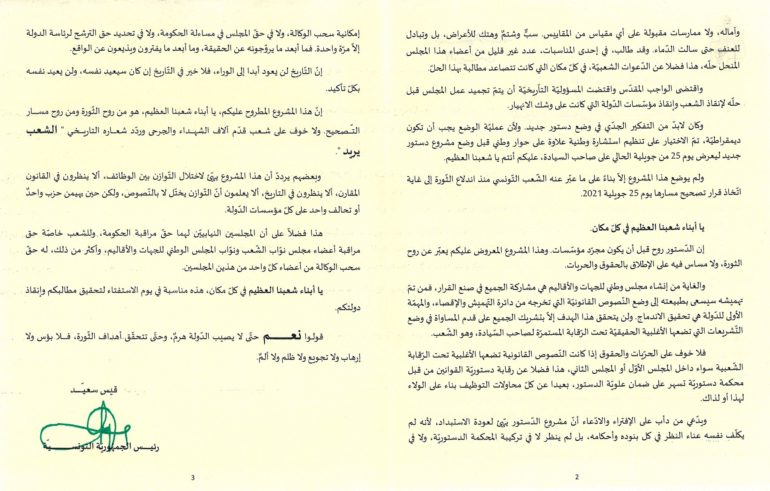 وأماله، ولا ممارسات مقبولة على أي مقياس من المقاييس. سبٌّ وشتمٌ وهتك للأعراض، بل وتبادل
للعنف حتى سالت الدّماء. وقد طالب، في إحدى المناسبات، عدد غير قليل من أعضاء هذا المجلس
المنحل حلّه، هذا فضلا عن الدّعوات الشعبيّة، في كلّ مكان التي كانت تتصاعد مطالبة بهذا الحلّ.
واقتضى الواجب المقدّس واقتضت المسؤوليّة التّاريخيّة أن يتمّ تجميد عمل المجلس قبل
حلّه لإنقاذ الشعب وإنقاذ مؤسسات الدّولة التي كانت على وشك الانهيار.
وكان لابدّ من التفكير الجدّي في وضع دستور جديد. ولأن عمليّة الوضع يجب أن تكون
ديمقراطيّة، تمّ الاختيار على تنظيم استشارة وطنية علاوة على حوار وطني قبل وضع مشروع دستور
جديد ليعرض يوم 25 من جويلية الحالي على صاحب السيادة، عليكم أنتم يا شعبنا العظيم.
ولم يوضع هذا المشروع إلاّ بناءً على ما عبّر عنه الشّعب التّونسي منذ اندلاع الثّورة إلى غاية
اتّخاذ قرار تصحيح مسارها يوم 25 جويلية 2021.
يا أبناء شعبنا العظيم في كلّ مكان.
إن الدّستور روح قبل أن يكون مجرّد مؤسّسات. وهذا المشروع المعروض عليكم يعبّر عن روح
الثورة، ولا مساس فيه على الإطلاق بالحقوق والحريات.
والغاية من إنشاء مجلس وطني للجهات والأقاليم هي مشاركة الجميع في صنع القرار، فمن تمّ
تهميشه سيسعى بطبيعته إلى وضع النّصوص القانونيّة التي تخرجه من دائرة التّهميش والإقصاء، والمهمّة
الأولى للدّولة هي تحقيق الاندماج. ولن يتحقق هذا الهدف إلاّ بتشريك الجميع على قدم المساواة في وضع
التّشريعات التي تضعها الأغلبية الحقيقيّة تحت الرّقابة المستمرّة لصاحب السّيادة، وهو الشّعب.
فلا خوف على الحرّيات والحقوق إذا كانت النّصوص القانونية تضعها الأغلبية تحت الرّقابة
الشّعبية سواء داخل المجلس الأوّل أو المجلس الثاني، هذا فضلا عن رقابة دستوريّة القوانين من قبل
محكمة دستوريّة تسهر على ضمان علويّة الدستور، بعيدا عن كلّ محاولات التوظيف بناء على الولاء
لهذا أو لذاك.
ويدّعي من دأب على الإفتراء والادعاء أنّ مشروع الدّستور يهيّئ لعودة الاستبداد، لأنه لم
يكلّف نفسه عناء النظر في كل بنوده وأحكامه، بل لم ينظر لا في تركيبة المحكمة الدستوريّة، ولا في
2
إمكانية سحب الوكالة، ولا في حقّ المجلس في مساءلة الحكومة، ولا في تحديد حق الترشح لرئاسة الدولة
إلاّ مرّة واحدة. فما أبعد ما يروّجونه عن الحقيقة، وما أبعد ما يفترون ويذيعون عن الواقع.
إنّ التّاريخ لن يعود أبدا إلى الوراء، فلا خير في التّاريخ إن كان سيعيد نفسه، ولن يعيد نفسه
بكلّ تأكيد.
إنّ هذا المشروع المطروح عليكم، يا أبناء شعبنا العظيم، هو من روح الثّورة ومن روح مسار
التّصحيح. ولا خوف على شعب قدّم آلاف الشهداء والجرحى وردّد شعاره التاريخي " الشعب
يريد ".
وبعضهم يردّد أن هذا المشروع يهيّئ لاختلال التّوازن بين الوظائف، ألا ينظرون في القانون
المقارن، ألا ينظرون في التاريخ، ألا يعلمون أنّ التّوازن يختلّ لا بالنّصوص، ولكن حين يهيمن حزب واحدٌ
أو تحالف واحد على كلّ مؤسسات الدّولة.
هذا فضلاً على أن المجلسين النيابيّين لهما حقّ مراقبة الحكومة، وللشعب خاصّة حق
مراقبة أعضاء مجلس نوّاب الشّعب ونوّاب المجلس الوطني للجهات والأقاليم، وأكثر من ذلك، له حقّ
سحب الوكالة من أعضاء كلّ واحد من هذين المجلسين.
يا أبناء شعبنا العظيم في كلّ مكان، هذه مناسبة في يوم الاستفتاء لتحقيق مطالبكم وإنقاذ
دولتكم.
قولـوا نعـم حتّى لا يصيب الدّولة هرمٌ، وحتّى تتحقّق أهداف الثّورة، فـلا بؤس ولا
إرهاب ولا تجويع ولا ظلم ولا ألمٌ.
قيس سعيّـد
رئيـس الجمهوريّة التونسيّـة
3